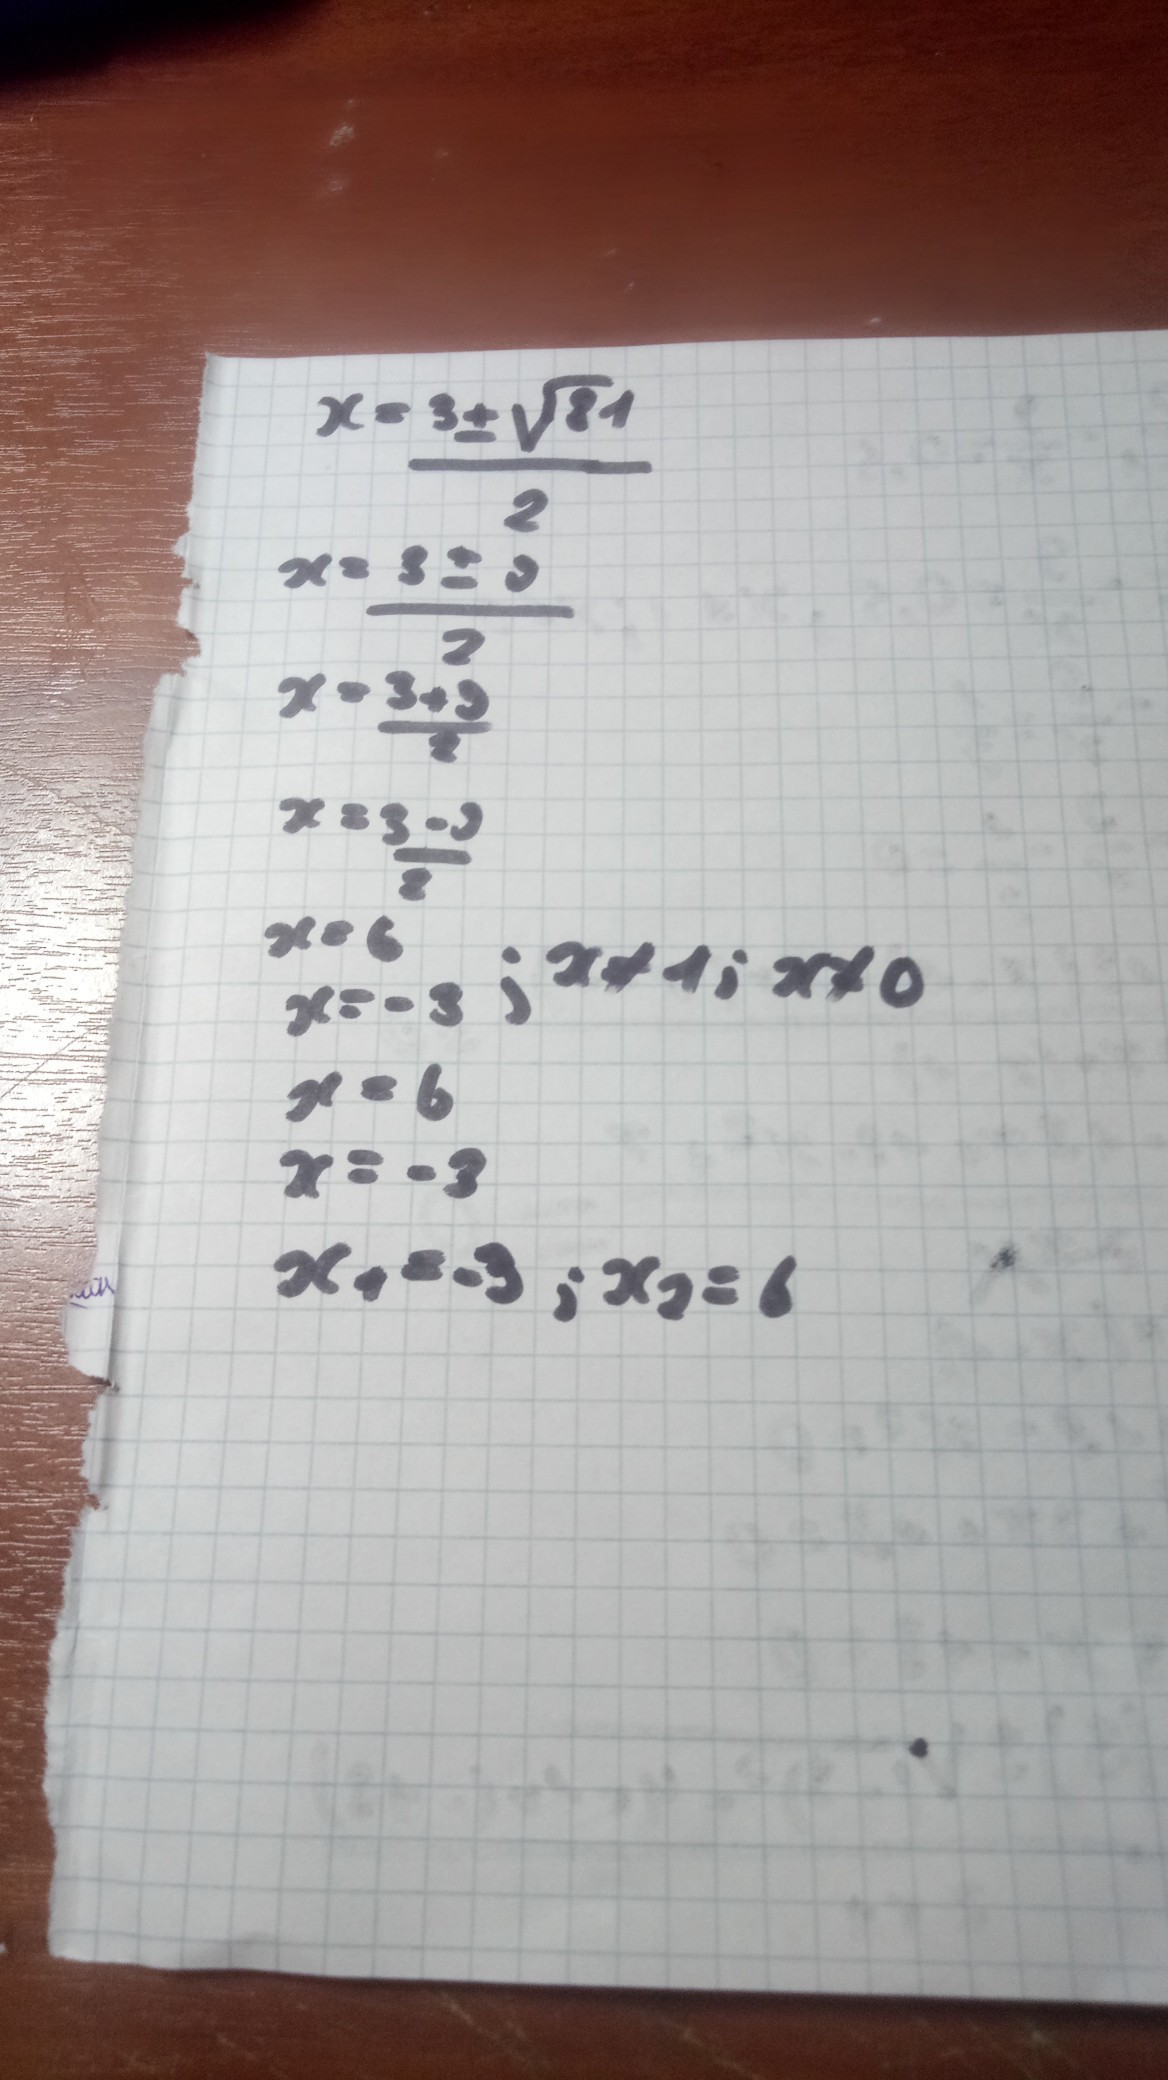 x = 3 ± √81
2
x = 3 ± 9
2
x = 3+9
2
x = 3-9
2
x = 6
x = -3 ; x ≠ 1 ; x ≠ 0
x = 6
x = -3
x₁ = -3 ; x₂ = 6